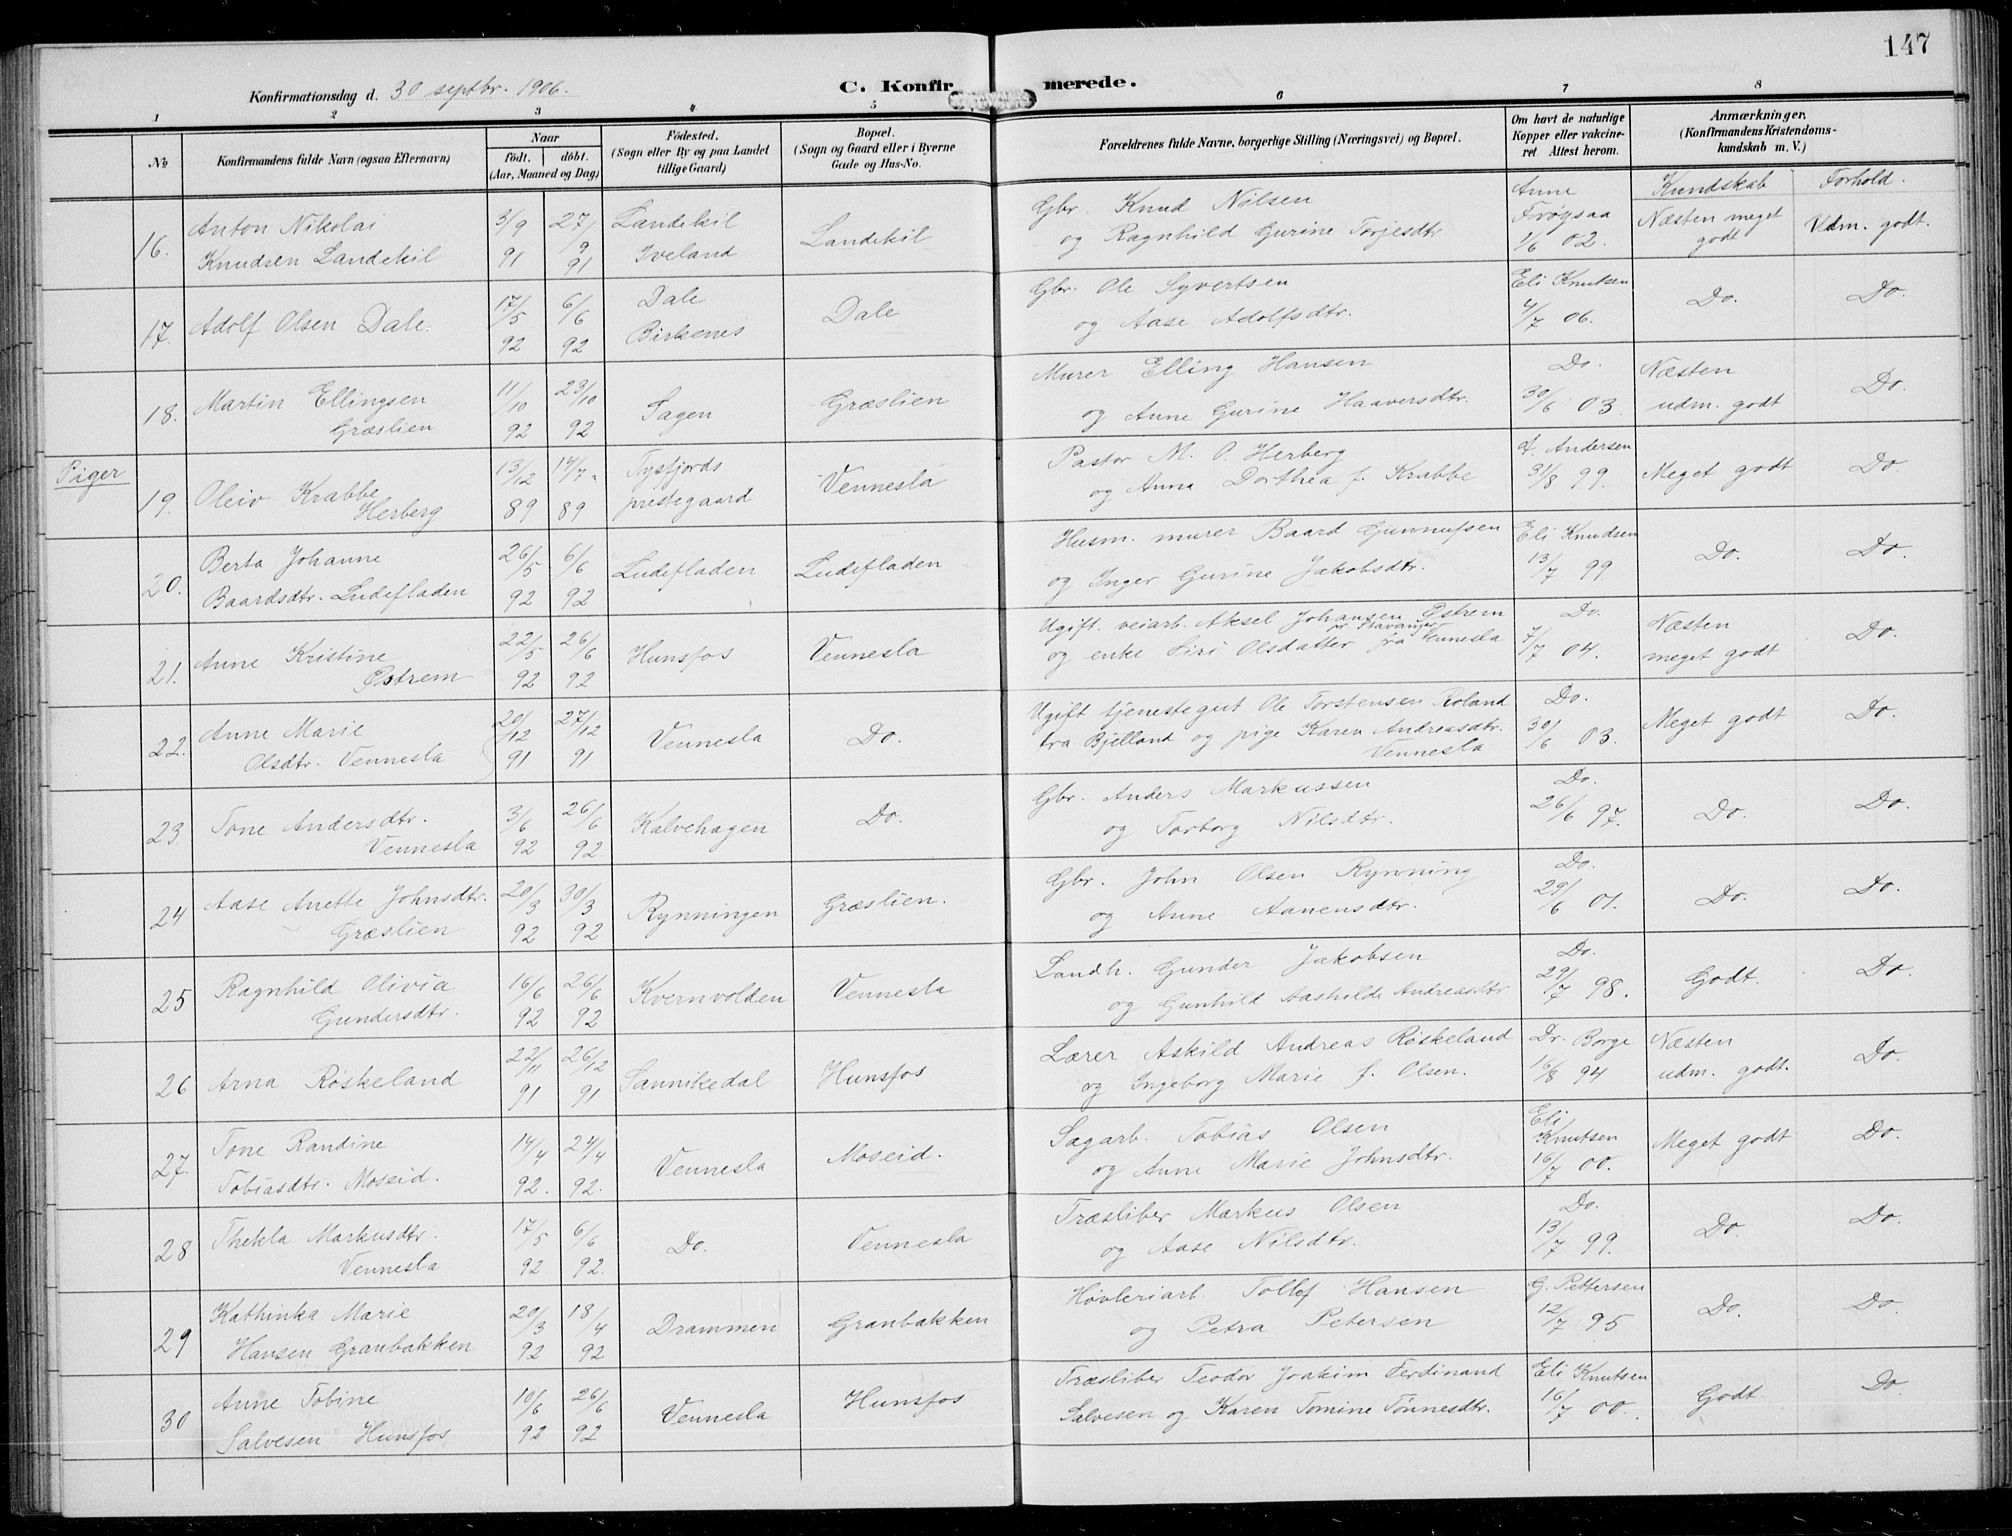 147
Konfirmationsdag d. 30 septbr. 1906.
C. Konfirmerede.
1 2 3 4 5 6 7 8
No
Konfirmandens fulde Navn (ogsaa Efternavn)
Naar
født. døbt.
(Aar, Maaned og Dag)
Fødested.
(Sogn eller By og paa Landet
tillige Gaard)
Bopæl.
(Sogn og Gaard eller i Byerne
Gade og Hus-No.
Forældrenes fulde Navne, borgerlige Stilling (Næringsvei) og Bopæl.
Om havt de naturlige
Kopper eller vakcine-
ret Attest herom.
Anmærkninger,
(Konfirmandens Kristendoms-
kundskab m. V.)
Kundskab Forhold.
16. Anton Nikolai
Knudsen Landekil
3/9 91 27/9 91
Landekil
Iveland
Landekil
Gbr. Knud Nilsen
og Ragnhild Gurine Torjesdtr
Anne
Frøysaa
1/6 02.
Næsten meget
godt
Udm. godt.
17. Adolf Olsen Dale.
17/5 92 6/6 92
Dale
Birkenes
Dale
Gbr. Ole Syvertsen
og Aase Adolfsdtr.
Eli Knutsen
4/7 06.
Do. Do.
18. Martin Ellingsen
Græslien
11/10 92 23/10 92
Sagen
Græslien
Murer Elling Hansen
og Anne Gurine Haaversdtr.
Do.
30/6 03.
Næsten
udm. godt
Do.
Piger
19. Oleiv Krabbe
Herberg
13/12 89 14/7 89
Tysfjords
prestegaard
Vennesla
Pastor M. O. Herberg
og Anna Dorthea f. Krabbe
A. Andersen
31/8 99.
Meget godt
Do.
20. Berta Johanne
Baardsdtr. Ludefladen
26/5 92 6/6 92
Ludefladen
Ludefladen
Husm. murer Baard Gunnufsen
og Inger Gurine Jakobsdtr.
Eli Knudsen
13/7 99.
Do. Do.
21. Anne Kristine
Østrem
22/5 92 26/6 92
Hunsfos
Vennesla
Ugift. veiarb. Aksel Johansen Østrem
pr. Stavanger
og enke Siri Olsdatter fra Vennesla
Do.
7/7 04.
Næsten
meget godt
Do.
22. Anne Marie
Olsdtr. Vennesla
20/12 91 27/12 91
Vennesla
Do.
Ugift tjenestegut Ole Torstensen Roland
fra Bjelland og pige Karen Andreasdtr.
Vennesla
Do.
30/6 03.
Meget godt
Do.
23. Tone Andersdtr.
Vennesla
3/6 92 26/6 92.
Kalvehagen
Do.
Gbr. Anders Markussen
og Torborg Nilsdtr.
Do.
26/6 97.
Do. Do.
24 Aase Anette Johnsdtr.
Græslien
20/3 92 30/3 92
Rynningen
Græslien.
Gbr. John Olsen Rynning
og Anne Aanensdtr.
Do.
29/6 01.
Do. Do.
25 Ragnhild Olivia
Gundersdtr.
16/6 92 26/6 92
Kvernvolden
Vennesla
Landh. Gunder Jakobsen
og Gunhild Aashilde Andreasdtr
Do.
29/7 98.
Godt.
Do.
26 Arna Røskeland
22/11 91 26/12 91
Sannikedal
Hunsfos
Lærer Askild Andreas Røskeland
og Ingeborg Marie f. Olsen.
Dr. Borge
16/8 94
Næsten
udm. godt.
Do.
27. Tone Randine
Tobiasdtr. Moseid.
14/4 92. 24/4 92.
Vennesla
Moseid.
Sagarb. Tobias Olsen
og Anne Marie Johnsdtr.
Eli
Knutsen
16/7 00.
Meget godt
Do.
28 Thekla Markusdtr.
Vennesla
17/5 92 6/6 92.
Do.
Vennesla
Træsliber Markus Olsen
og Aase Nilsdtr.
Do.
13/7 99.
Do. Do.
29 Kathinka Marie
Hansen Granbakken
20/3 92 18/4 92
Drammen
Granbakken
Høvleriarb. Tollef Hansen
og Petra Petersen
G. Pettersen
12/7 95
Do. Do.
30 Anne Tobine
Salvesen Hunsfos
10/6 92 26/6 92
Vennesla
Hunsfos
Træsliber Teodor Joakim Ferdinand
Salvesen og Karen Tomine Tønnesdtr.
Eli Knutsen
16/7 00.
Godt.
Do